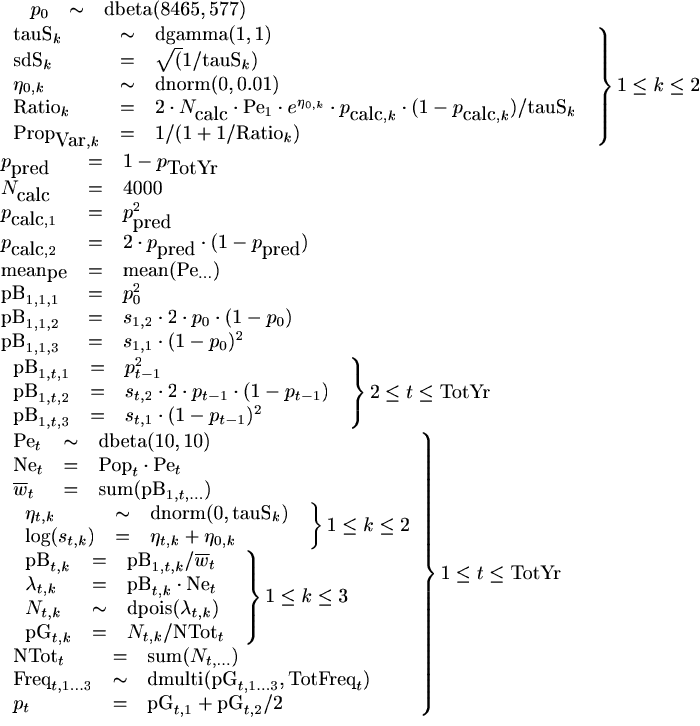 p₀ ∼ dbeta(8465, 577)
tauSₖ ∼ dgamma(1, 1)
sdSₖ = √(1/tauSₖ)
η₀,ₖ ∼ dnorm(0, 0.01)
Ratioₖ = 2 · N_calc · Pe₁ · e^{η₀,ₖ} · p_{calc,k} · (1 − p_{calc,k})/tauSₖ
Prop_{Var,k} = 1/(1 + 1/Ratioₖ)
} 1 ≤ k ≤ 2
p_pred = 1 − p_TotYr
N_calc = 4000
p_{calc,1} = p²_pred
p_{calc,2} = 2 · p_pred · (1 − p_pred)
mean_pe = mean(Pe_{...})
pB_{1,1,1} = p₀²
pB_{1,1,2} = s_{1,2} · 2 · p₀ · (1 − p₀)
pB_{1,1,3} = s_{1,1} · (1 − p₀)²
pB_{1,t,1} = p²_{t−1}
pB_{1,t,2} = s_{t,2} · 2 · p_{t−1} · (1 − p_{t−1})
pB_{1,t,3} = s_{t,1} · (1 − p_{t−1})²
} 2 ≤ t ≤ TotYr
Pe_t ∼ dbeta(10, 10)
Ne_t = Pop_t · Pe_t
w̅_t = sum(pB_{1,t,...})
η_{t,k} ∼ dnorm(0, tauSₖ)
log(s_{t,k}) = η_{t,k} + η_{0,k}
} 1 ≤ k ≤ 2
pB_{t,k} = pB_{1,t,k}/w̅_t
λ_{t,k} = pB_{t,k} · Ne_t
N_{t,k} ∼ dpois(λ_{t,k})
pG_{t,k} = N_{t,k}/NTot_t
} 1 ≤ k ≤ 3
NTot_t = sum(N_{t,...})
Freq_{t,1...3} ∼ dmulti(pG_{t,1...3}, TotFreq_t)
p_t = pG_{t,1} + pG_{t,2}/2
} 1 ≤ t ≤ TotYr